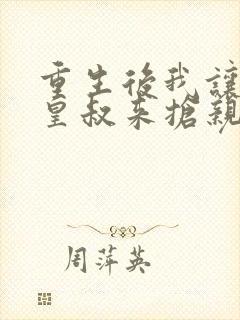 重生後我讓
皇叔來搶親
周萍英